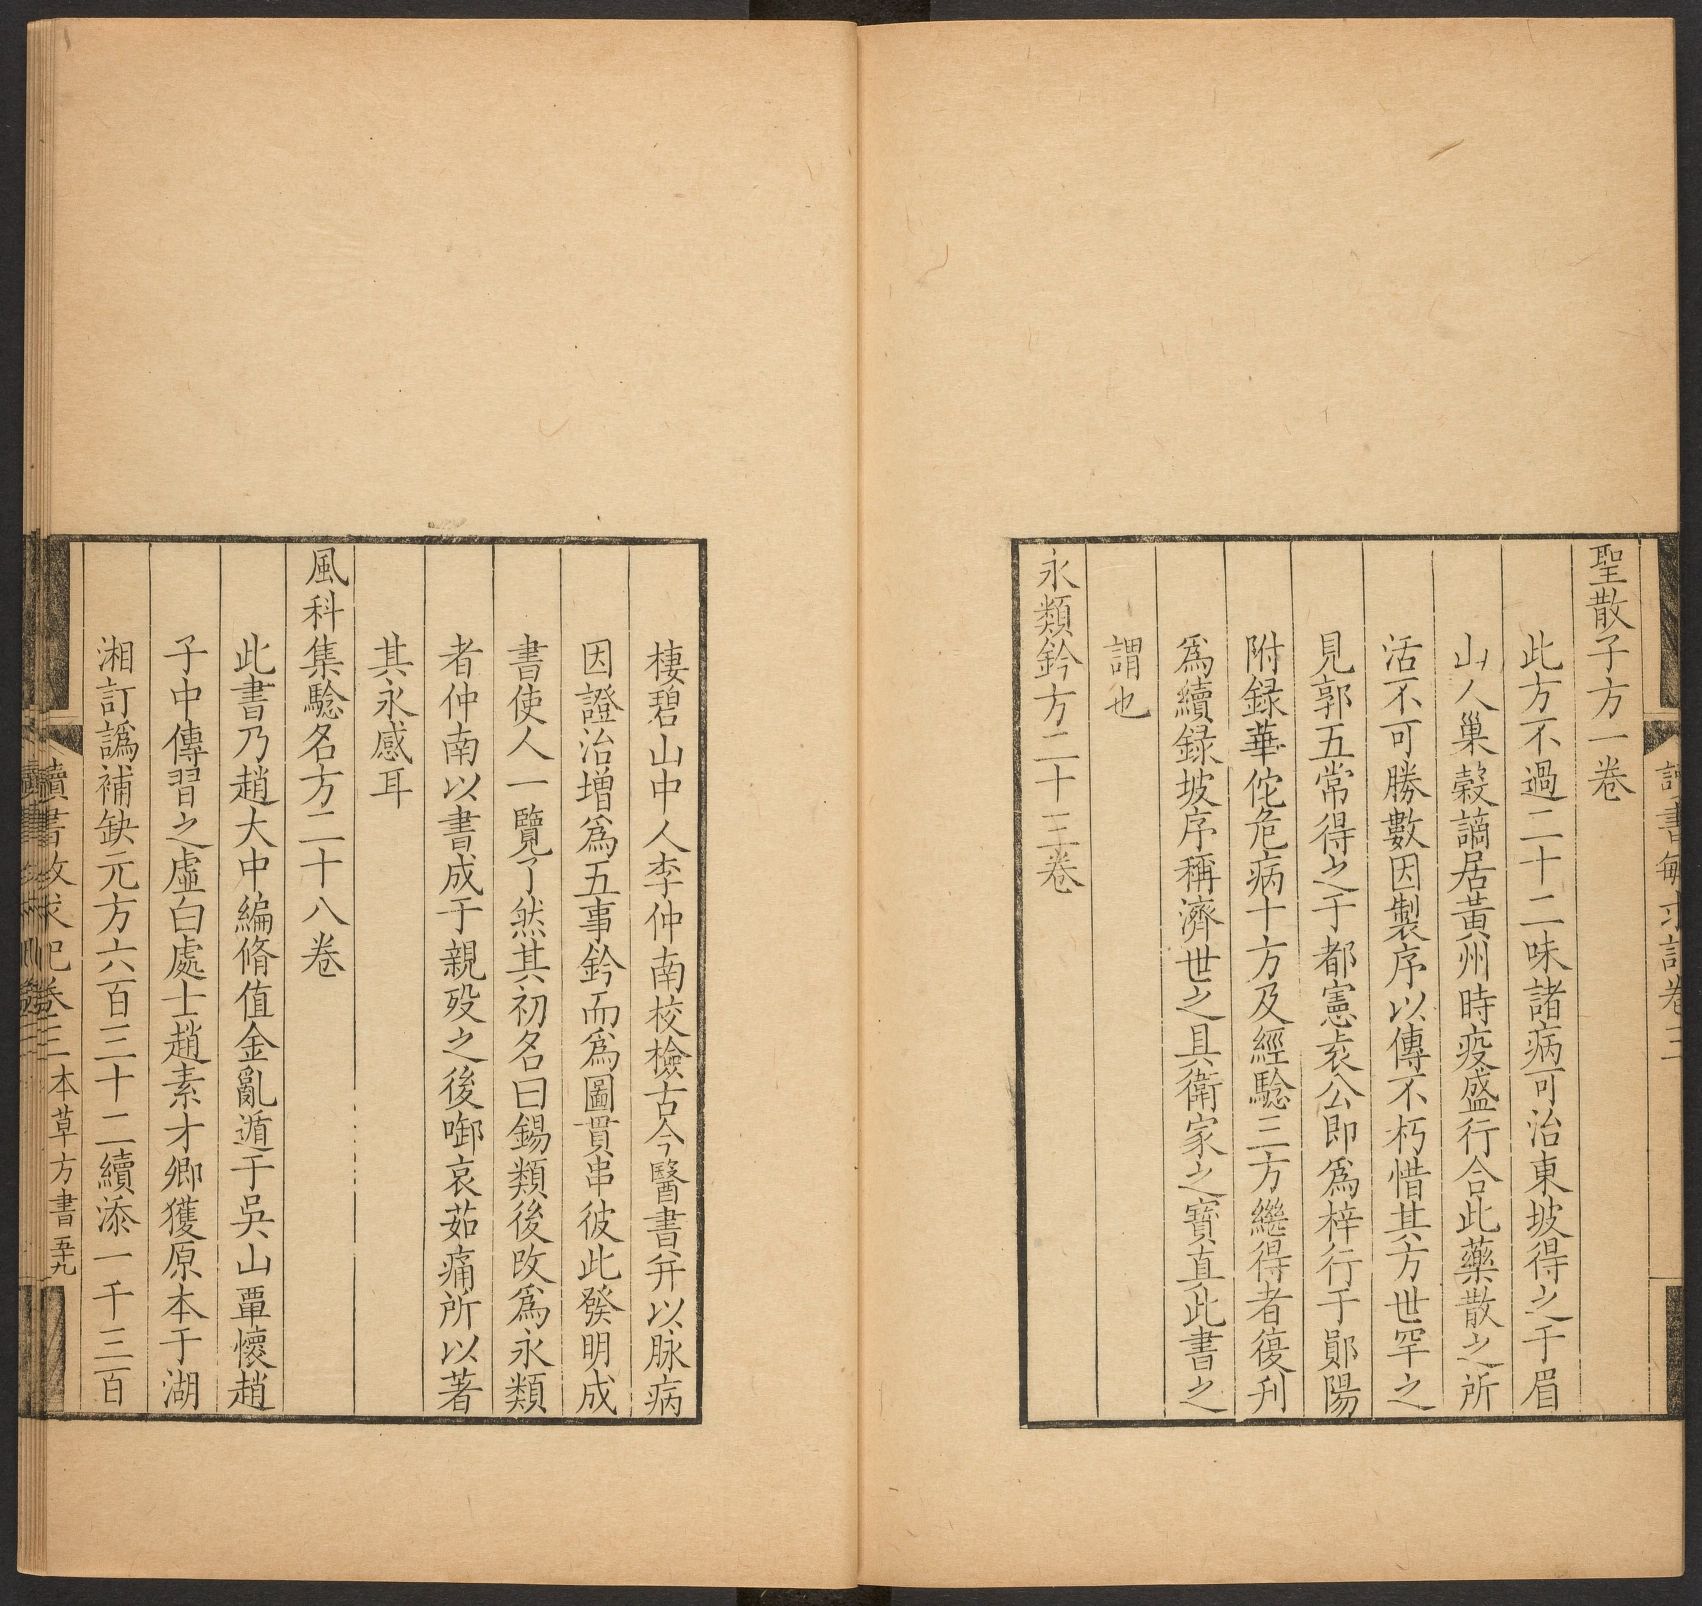 聖散子方一卷
此方不過二十二味諸病可治東坡得之于眉
山人巢穀謫居黃州時疫盛行合此藥散之所
活不可勝數因製序以傳不朽惜其方世罕之
見郭五常得之于都憲袁公即為梓行于鄖陽
附録華佗危病十方及經驗三方繼得者復刊
為續録坡序稱濟世之具衛家之寶直此書之
謂也
永類鈐方二十三卷
棲碧山中人李仲南校檢古今醫書并以脉病
因證治增為五事鈐而為圖貫串彼此發明成
書使人一覽了然其初名曰錫類後改為永類
者仲南以書成于親歿之後啣哀茹痛所以著
其永感耳
風科集驗名方二十八卷
此書乃趙大中編脩值金亂遁于吳山覃懷趙
子中傳習之虛白處士趙素才卿獲原本于湖
湘訂譌補缺元方六百三十二續添一千三百
讀書敏求記卷三 本草方書 五十九